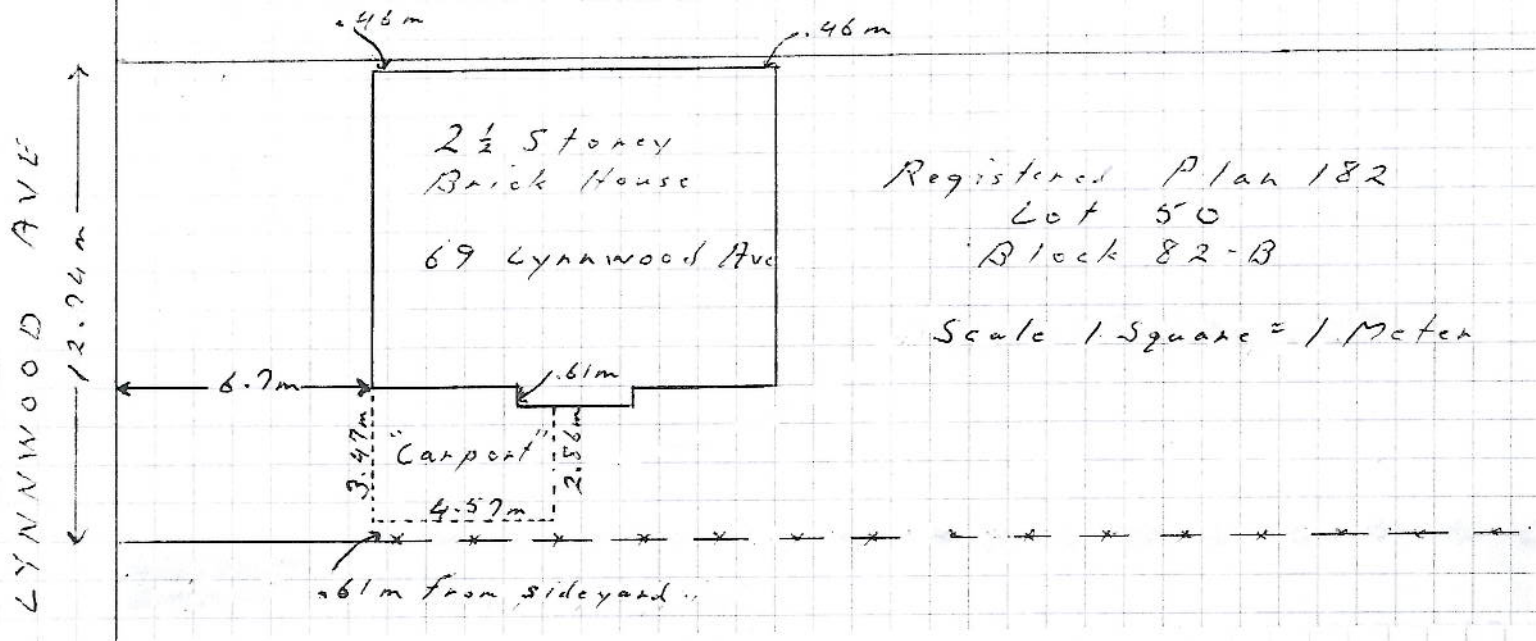 .46m
.46m
LYNNWOOD AVE
12.74m
2 ½ Storey
Brick House
69 Lynnwood Ave
Registered Plan 182
Lot 50
Block 82-B
Scale 1 Square = 1 Meter
6.7m
.61m
3.47m
"Carport"
2.56m
4.57m
.61m from sideyard